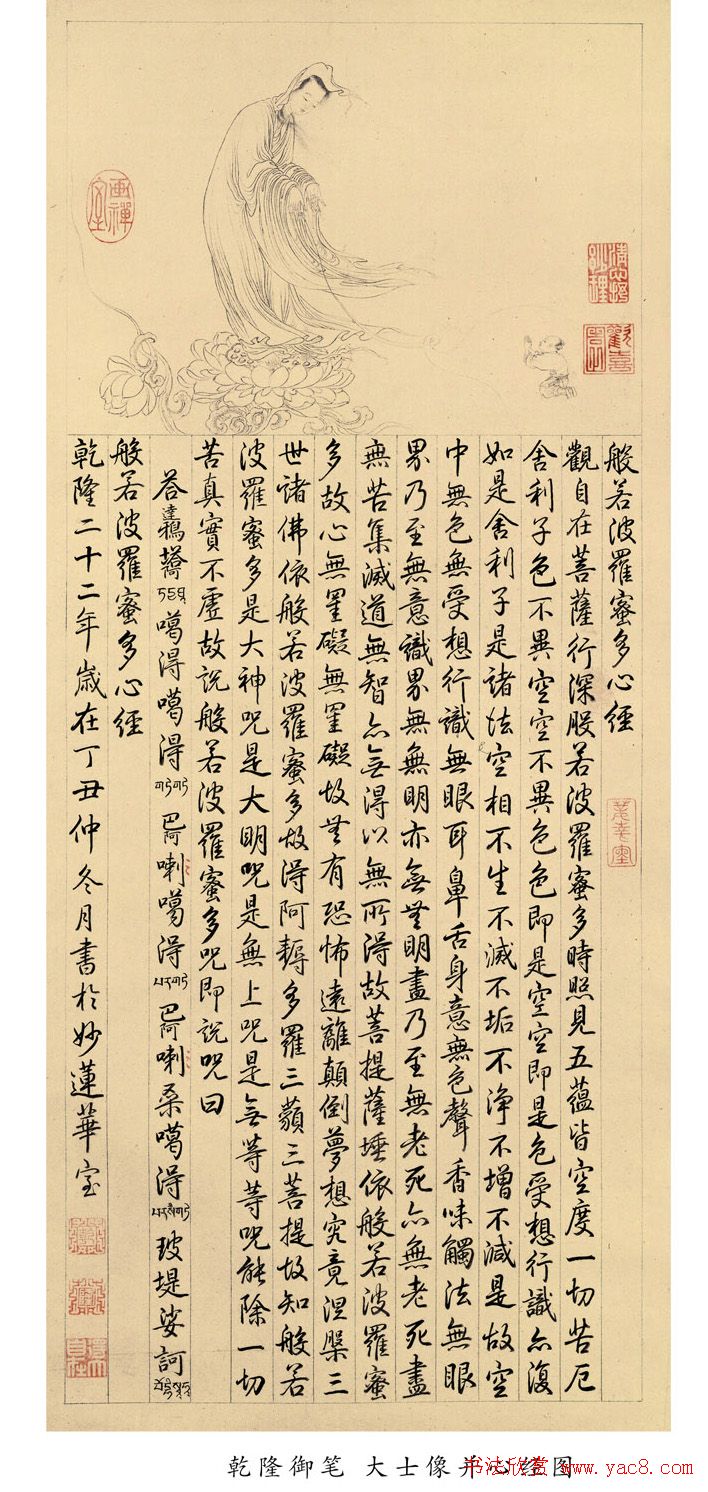 般若波羅蜜多心經
觀自在菩薩行深般若波羅蜜多時照見五蘊皆空度一切苦厄
舍利子色不異空空不異色色即是空空即是色受想行識亦復
如是舍利子是諸法空相不生不滅不垢不淨不增不減是故空
中無色無受想行識無眼耳鼻舌身意無色聲香味觸法無眼
界乃至無意識界無無明亦無無明盡乃至無老死亦無老死盡
無苦集滅道無智亦無得以無所得故菩提薩埵依般若波羅蜜
多故心無罣礙無罣礙故無有恐怖遠離顛倒夢想究竟涅槃三
世諸佛依般若波羅蜜多故得阿耨多羅三藐三菩提故知般若
波羅蜜多是大神咒是大明咒是無上咒是無等等咒能除一切
苦真實不虛故說般若波羅蜜多咒即說咒曰
答 噶得噶得 巴阿喇噶得 巴阿喇桑噶得 玻堤娑訶
般若波羅蜜多心經
乾隆二十二年歲在丁丑仲冬月書於妙蓮華室
畫禪室
歡喜園
乾隆御笔 大士像并心经图
书法欣赏 www.yac8.com